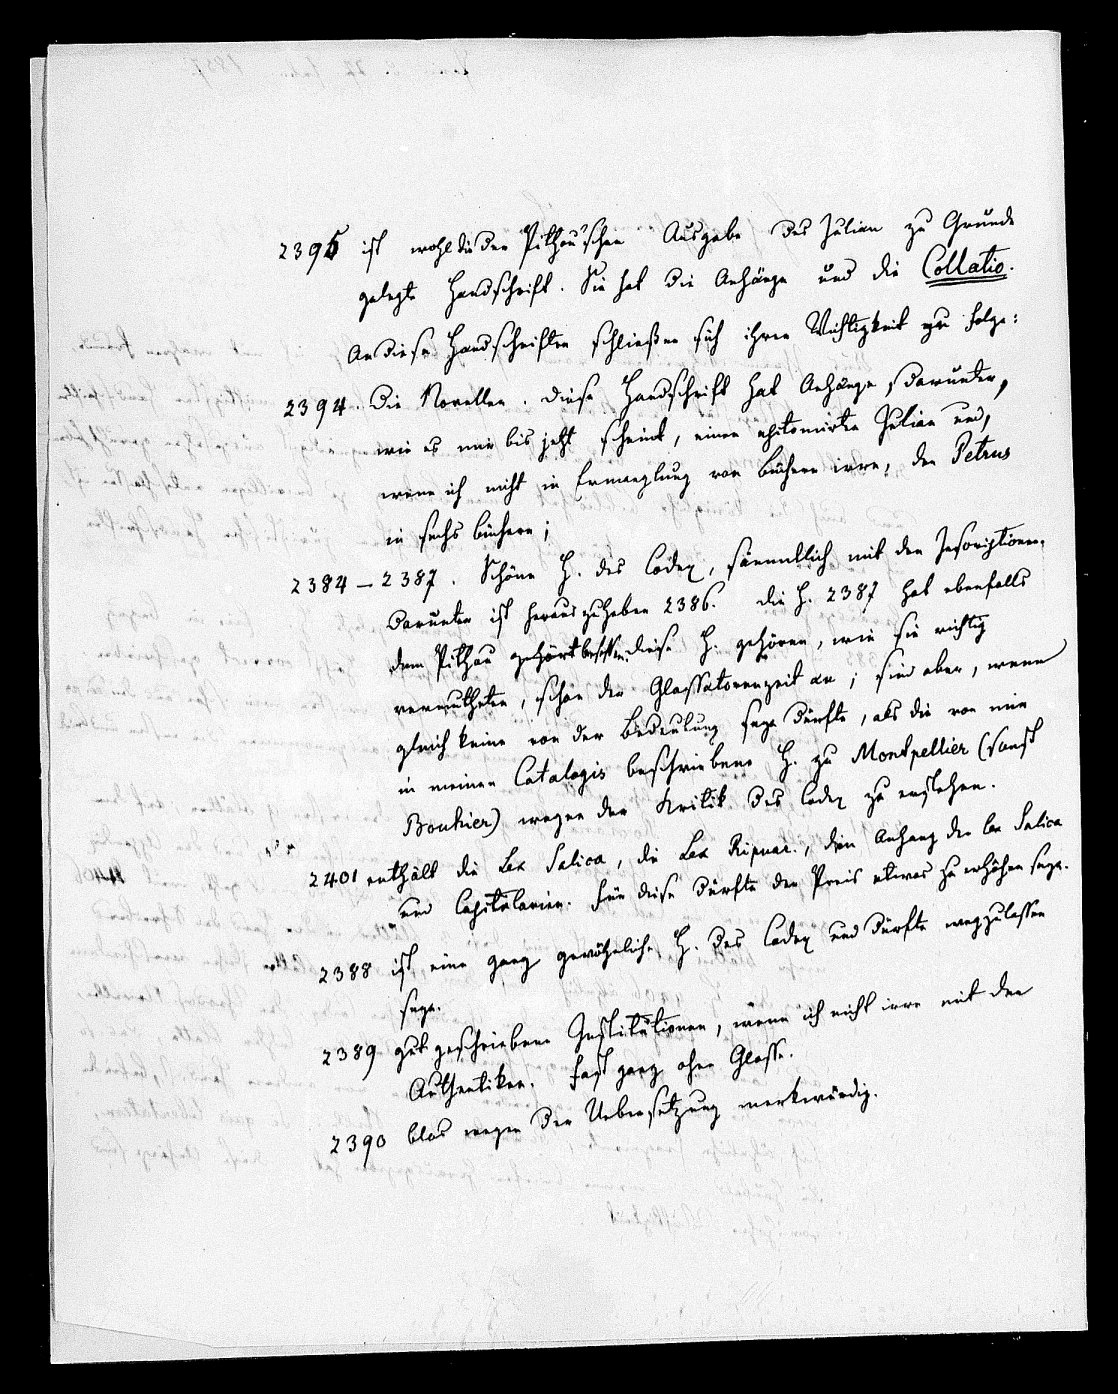 2395 ist wohl die der Pithou'schen Ausgabe des Julian zu Grunde
gelegte Handschrift. Sie hat die Anhänge und die Collatio.
An diese Handschriften schließen sich ihrer Wichtigkeit zu Folge:
2394. Die Novellen. Diese Handschrift hat Anhänge, darunter,
wie es mir bis jetzt scheint, einen epitomirten Julian und,
wenn ich nicht in Ermanglung von Büchern irre, den Petrus
in sechs Büchern;
2384 – 2387. Schöne H. des Codex, sämmtlich mit den Inscriptionen.
Darunter ist herauszuheben 2386. die H. 2387 hat ebenfalls
dem Pithou gehört diese H. gehören, wie sie richtig
vermutheten, schon der Glossatorenzeit an; sind aber, wenn
gleich keine von der Bedeutung seyn dürfte, als die von mir
in meinen Catalogis beschriebene H. zu Montpellier (sonst
Bouhier) wegen der Kritik des Codex zu erstehen.
2401 enthält die Lex Salica, die Lex Ripuar., den Anhang der lex Salica
und Capitularien. Für diese dürfte der Preis etwas zu erhöhen seyn.
2388 ist eine ganz gewöhnliche H. des Codex und dürfte wegzulassen
seyn.
2389 gut geschriebene Institutionen, wenn ich nicht irre mit den
Authentiken. Fast ganz ohne Glosse.
2390 blos wegen der Uebersetzung merkwürdig.